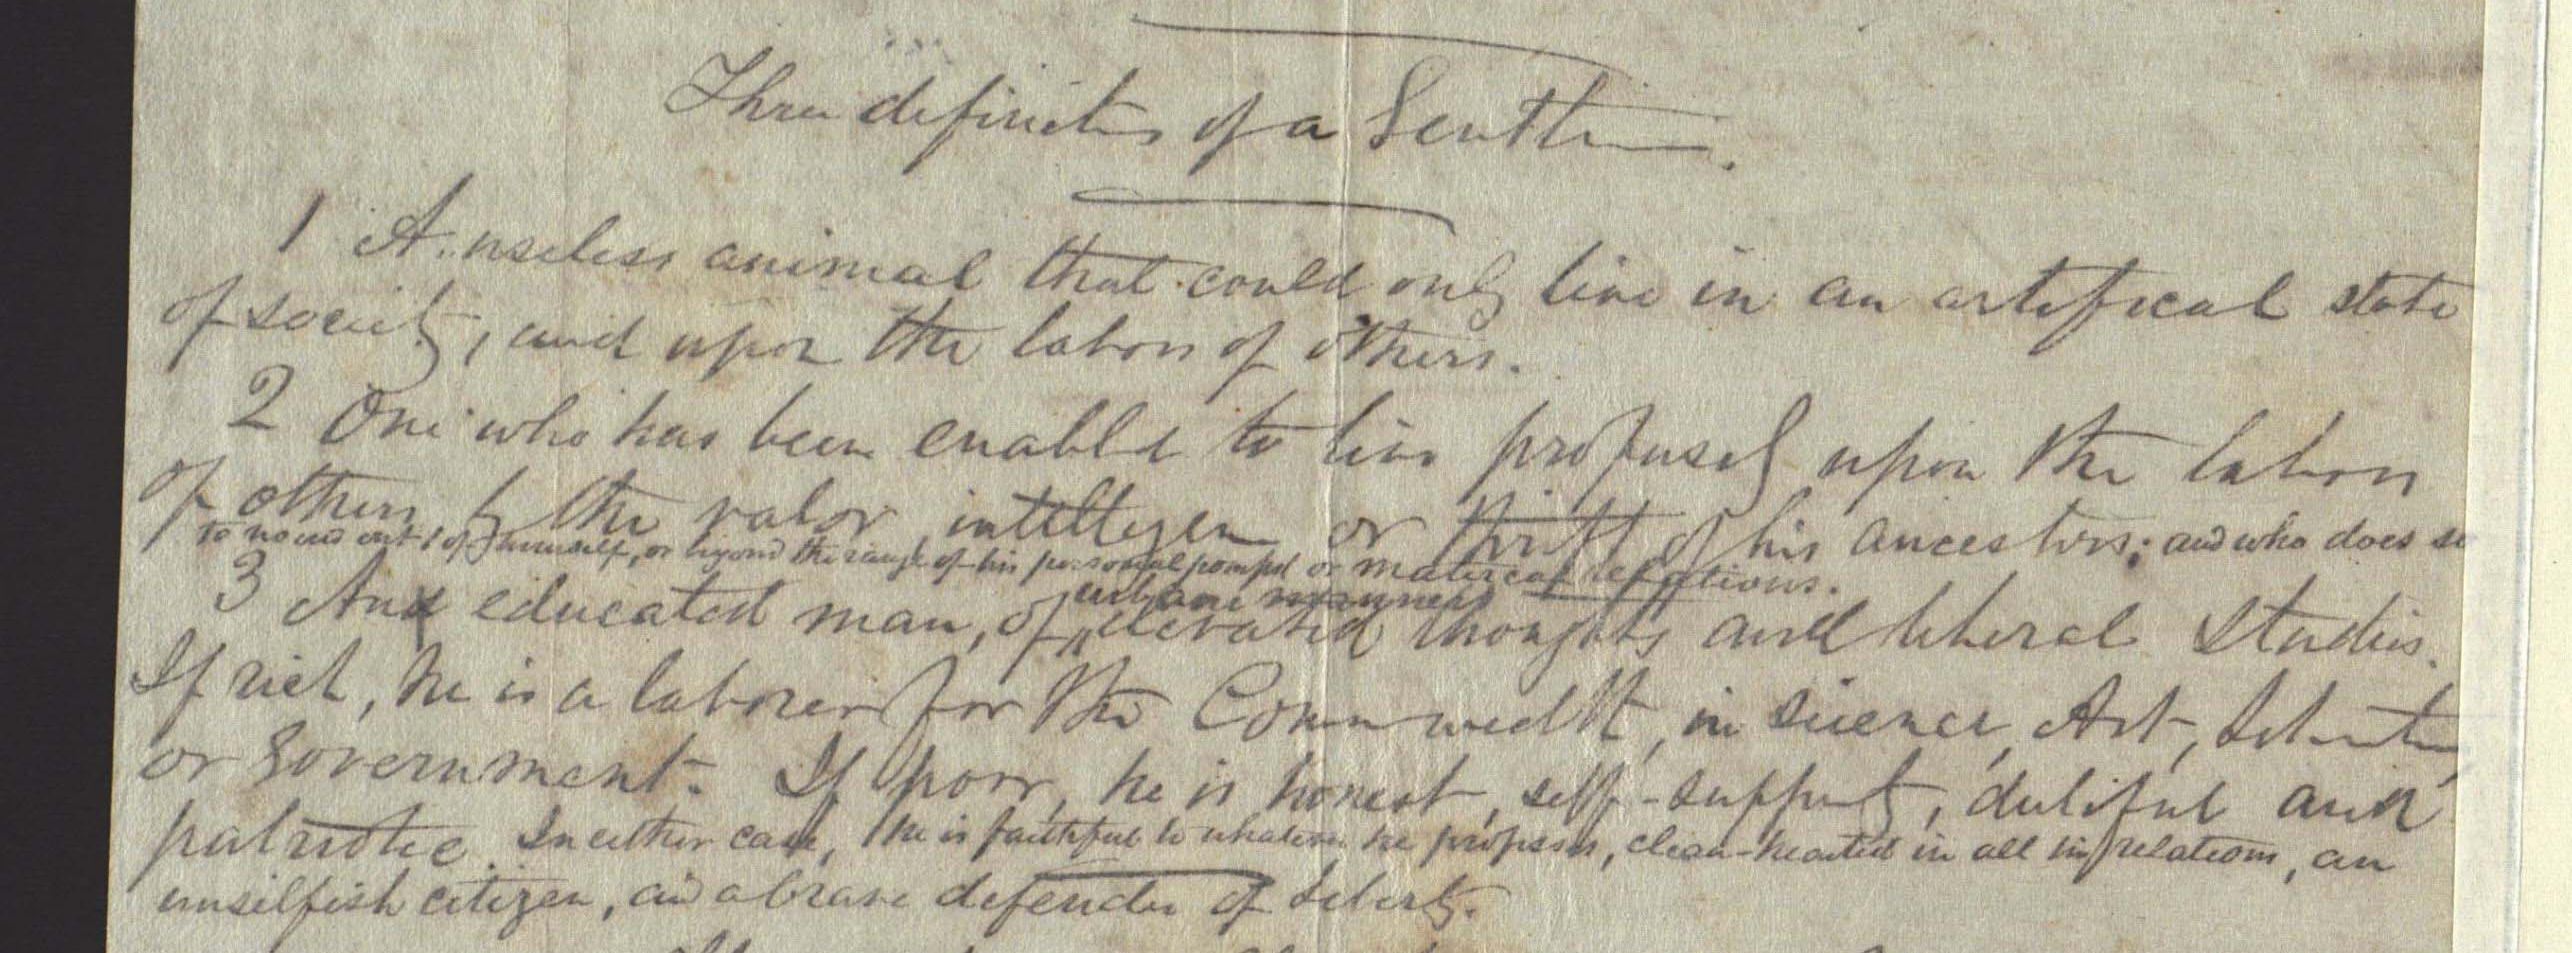 Three definitions of a Gentleman.
1 A useless animal that could only live in an artifical state
of society, and upon the labors of others.
2 One who has been enabled to live profusely upon the labors
of others, by the valor, intelligence or thrift of his ancestors; and who does so
to no end out of himself, or beyond the range of his personal or material relations.
urbane manners
3 An educated man, of elevated thoughts and liberal studies.
If rich, he is a laborer for the Commonwealth, in science, Art,
or Government. If poor, he is honest, self-supporting, dutiful and
patriotic. In either case, he is faithful to whatever he professes, clean-hearted in all his relations, an
unselfish citizen, and a brave defender of Liberty.